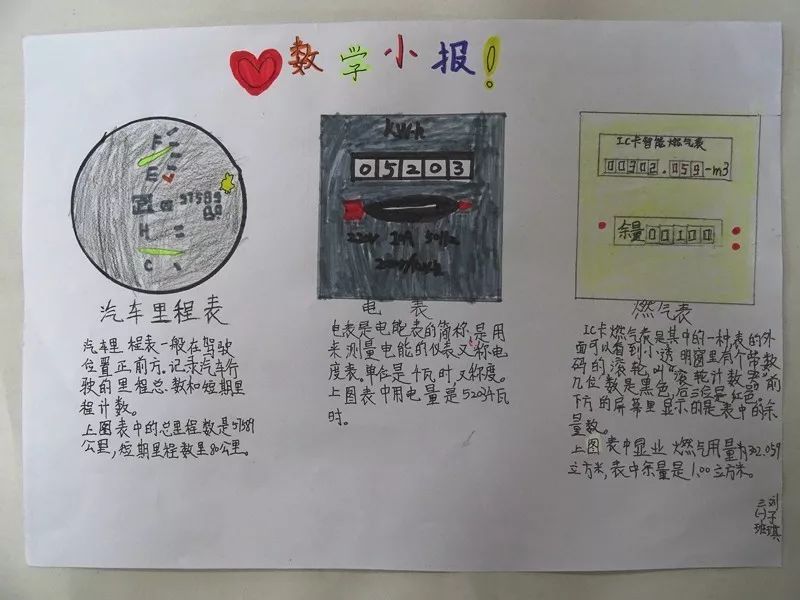 数学小报!
F
E
H
C
kwh
05203
220V 10A 50Hz
IC卡智能燃气表
00302.059-m3
余量00100
汽车里程表
汽车里程表一般在驾驶
位置正前方。记录汽车行
驶的里程总数和短期里
程计数。
上图表中的总里程数是57589
公里,短期里程数里80公里。
电表
电表是电能表的简称,是用
来测量电能的仪表又称电
度表。单位是千瓦时,又称度。
上图表中用电量是5203千瓦
时。
燃气表
IC卡燃气表是其中的一种表的外
面可以看到小透明窗里有个带数
码的滚轮,叫“滚轮计数器”前
几位数是黑色,后三位是红色。
下方的屏幕里显示的是表中的余
量数。
上图表中显业燃气用量有302.059
立方米,表中余量是1.00立方米。
三(一)班
刘子琪